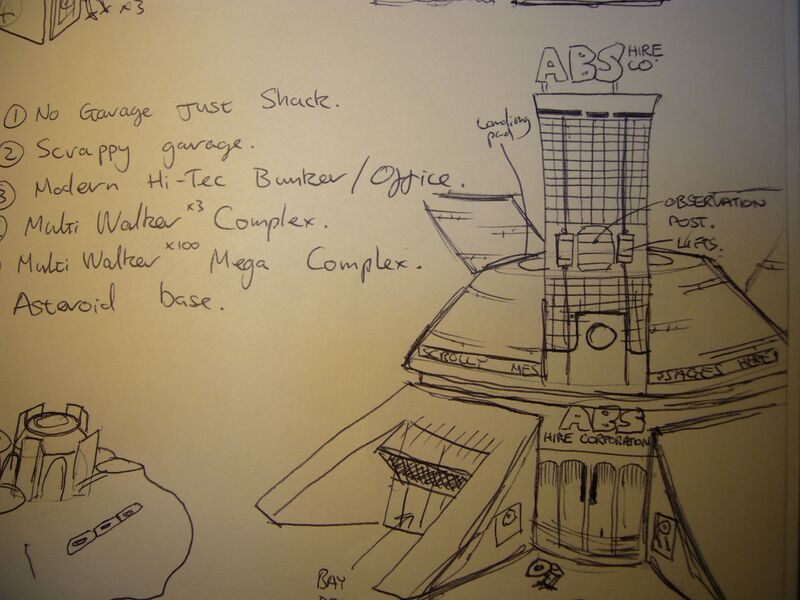 x3
① No Garage Just Shack.
② Scrappy garage.
3 Modern Hi-Tec Bunker/Office.
Multi Walker x3 Complex.
Multi Walker x100 Mega Complex.
Asteroid base.
ABS HIRE CO.
Landing pad
OBSERVATION POST.
LIFTS.
SCROLLY MESSAGES HERE
ABS
HIRE CORPORATION
BAY